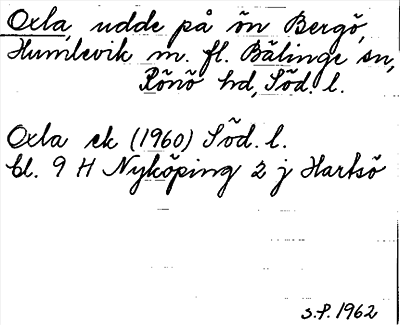 Oxla, udde på ön Bergö,
Humlevik m. fl. Bälinge sn,
Rönö hd, Söd. l.
Oxla ek (1960) Söd. l.
bl. 9 H Nyköping 2 j Hartsö
s.f. 1962